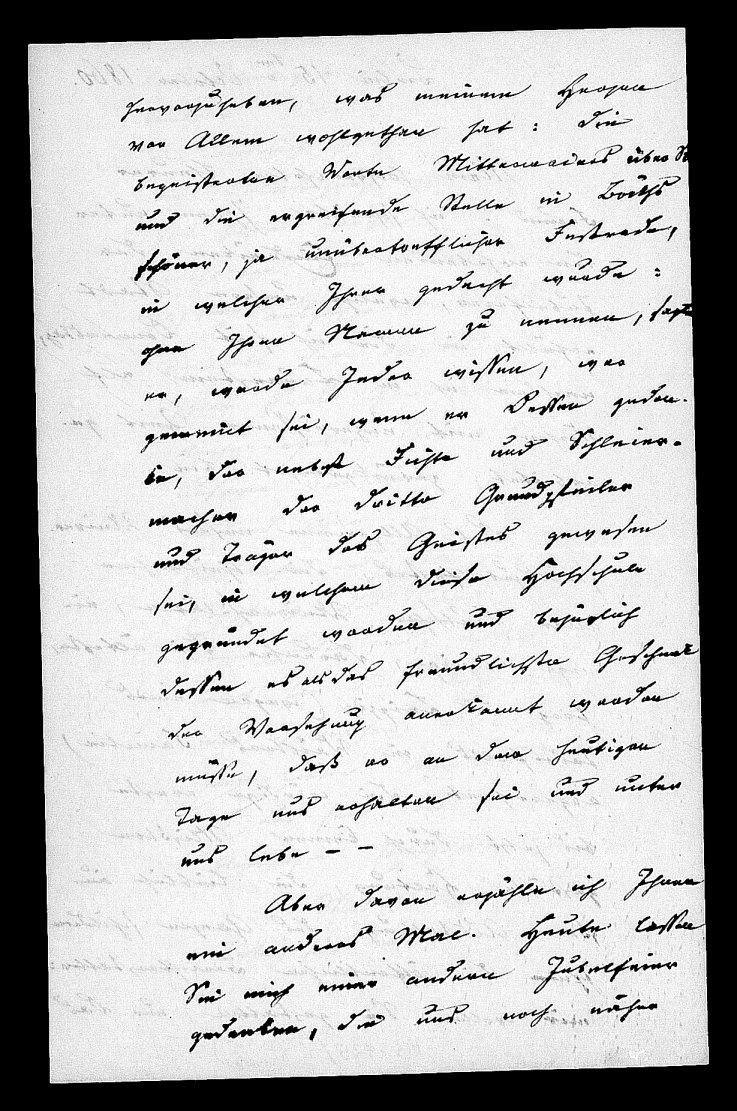 hervorzuheben, was meinem Herzen
vor Allem wohlgethan hat: die
begeisterten Worte Mittermaiers über Sie
und die ergreifende Stelle in Böckhs
schöner, ja unübertrefflicher Festrede,
in welcher Ihrer gedacht wurde:
ohne Ihren Namen zu nennen, sagte
er, werde Jeder wissen, wer
gemeint sei, wenn er Dessen geden-
ke, der nebst Fichte und Schleier-
macher der dritte Grundpfeiler
und Träger des Geistes gewesen
sei, in welchem diese Hochschule
gegründet worden und bezüglich
dessen es als das freundlichste Geschenk
der Vorsehung anerkannt werden
müsse, daß er an dem heutigen
Tage uns erhalten sei und unter
uns lebe – –
Aber davon erzähle ich Ihnen
ein anderes Mal. Heute lassen
Sie mich einer andern Jubelfeier
gedenken, die uns noch näher